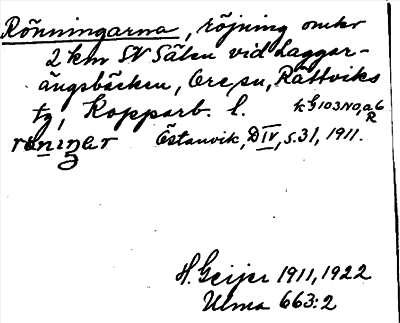 Rönningarna, röjning omkr
2 km SV Sälen vid Laggar-
ängsbäcken, Ore sn, Rättviks
tg, Kopparb. l. kG103NO, a6
R
Östanvik, D IV, s. 31, 1911.
H. Geijer 1911, 1922
Ulma 663:2